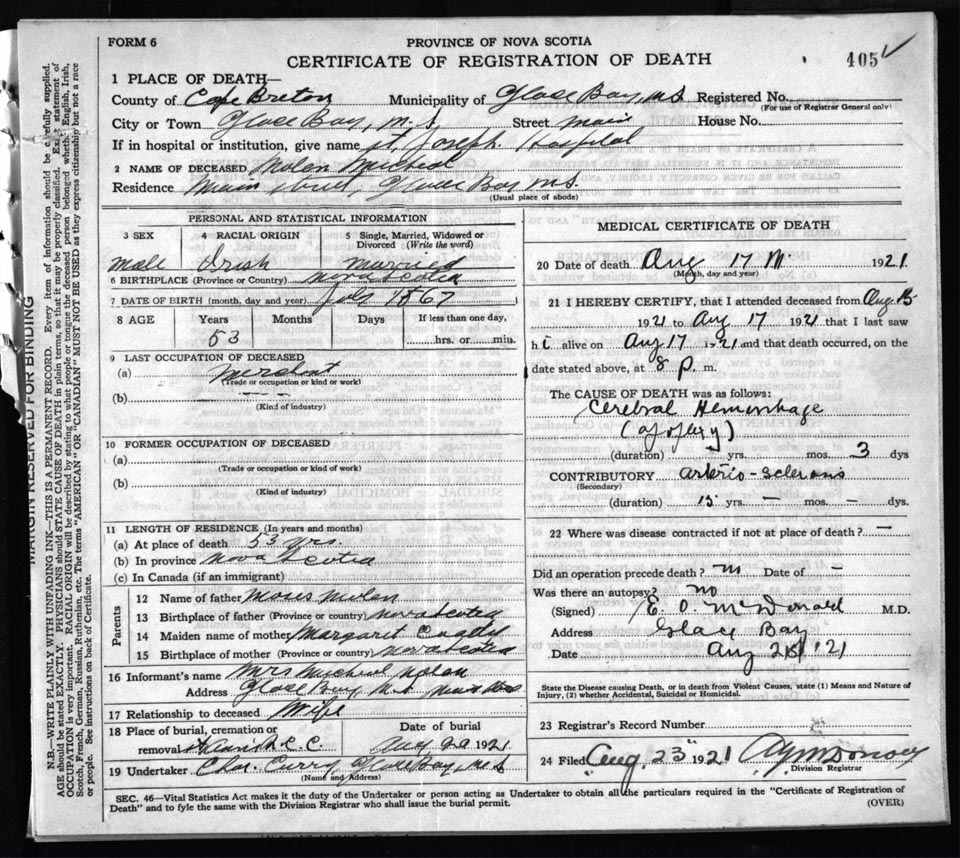 FORM 6
PROVINCE OF NOVA SCOTIA
CERTIFICATE OF REGISTRATION OF DEATH
405
1 PLACE OF DEATH—
County of Cape Breton Municipality of Glace Bay, N.S. Registered No.
(For use of Registrar General only)
City or Town Glace Bay, N.S. Street Main House No.
If in hospital or institution, give name St. Joseph Hospital
2 NAME OF DECEASED Nolan Micheal
Residence Main Street, Glace Bay N.S.
(Usual place of abode)
PERSONAL AND STATISTICAL INFORMATION
3 SEX
4 RACIAL ORIGIN
5 Single, Married, Widowed or Divorced (Write the word)
Male Irish Married
6 BIRTHPLACE (Province or Country) Nova Scotia
7 DATE OF BIRTH (month, day and year) July 1867
8 AGE Years Months Days If less than one day,
53 hrs. or min.
9 LAST OCCUPATION OF DECEASED
(a) Merchant
(Trade or occupation or kind or work)
(b)
(Kind of industry)
10 FORMER OCCUPATION OF DECEASED
(a)
(Trade or occupation or kind or work)
(b)
(Kind of industry)
11 LENGTH OF RESIDENCE (In years and months)
(a) At place of death 53 yrs.
(b) In province Nova Scotia
(c) In Canada (if an immigrant)
Parents
12 Name of father Nolan
13 Birthplace of father (Province or country) Nova Scotia
14 Maiden name of mother Margaret
15 Birthplace of mother (Province or country) Nova Scotia
16 Informant's name Mrs Micheal Nolan
Address Glace Bay N.S.
17 Relationship to deceased Wife
18 Place of burial, cremation or removal
Date of burial
Aug 20 1921
19 Undertaker Chas. Curry, Glace Bay, N.S.
(Name and Address)
MEDICAL CERTIFICATE OF DEATH
20 Date of death Aug 17 1921
(Month, day and year)
21 I HEREBY CERTIFY, that I attended deceased from Aug. 15
1921 to Aug 17 1921 that I last saw
h i alive on Aug 17 1921 and that death occurred, on the
date stated above, at 8 p. m.
The CAUSE OF DEATH was as follows:
Cerebral Hemorrhage
(apoplexy)
(duration) yrs. mos. 3 dys
CONTRIBUTORY Arterio-sclerosis
(Secondary)
(duration) 15 yrs. — mos. — dys.
22 Where was disease contracted if not at place of death? —
Did an operation precede death? no Date of —
Was there an autopsy? no
(Signed) E. O. McDonald M.D.
Address Glace Bay
Date Aug 21 '21
State the Disease causing Death, or in death from Violent Causes, state (1) Means and Nature of Injury, (2) whether Accidental, Suicidal or Homicidal.
23 Registrar's Record Number
24 Filed Aug. 23 1921
Division Registrar
SEC. 46—Vital Statistics Act makes it the duty of the Undertaker or person acting as Undertaker to obtain all the particulars required in the "Certificate of Registration of
Death" and to fyle the same with the Division Registrar who shall issue the burial permit.
(OVER)
MARGIN RESERVED FOR BINDING
N.B.—WRITE PLAINLY WITH UNFADING INK—THIS IS A PERMANENT RECORD. Every item of information should be carefully supplied.
AGE should be stated EXACTLY. PHYSICIANS should STATE CAUSE OF DEATH in plain terms, so that it may be properly classified. Exact statement of
OCCUPATION is very important. RACIAL ORIGIN will be described by stating to what people or tongue the deceased person belonged whether English, Irish,
Scotch, French, German, Russian, Ruthenian, etc. The terms "AMERICAN" OR "CANADIAN" MUST NOT BE USED as they express citizenship but not a race
or people. See instructions on back of Certificate.